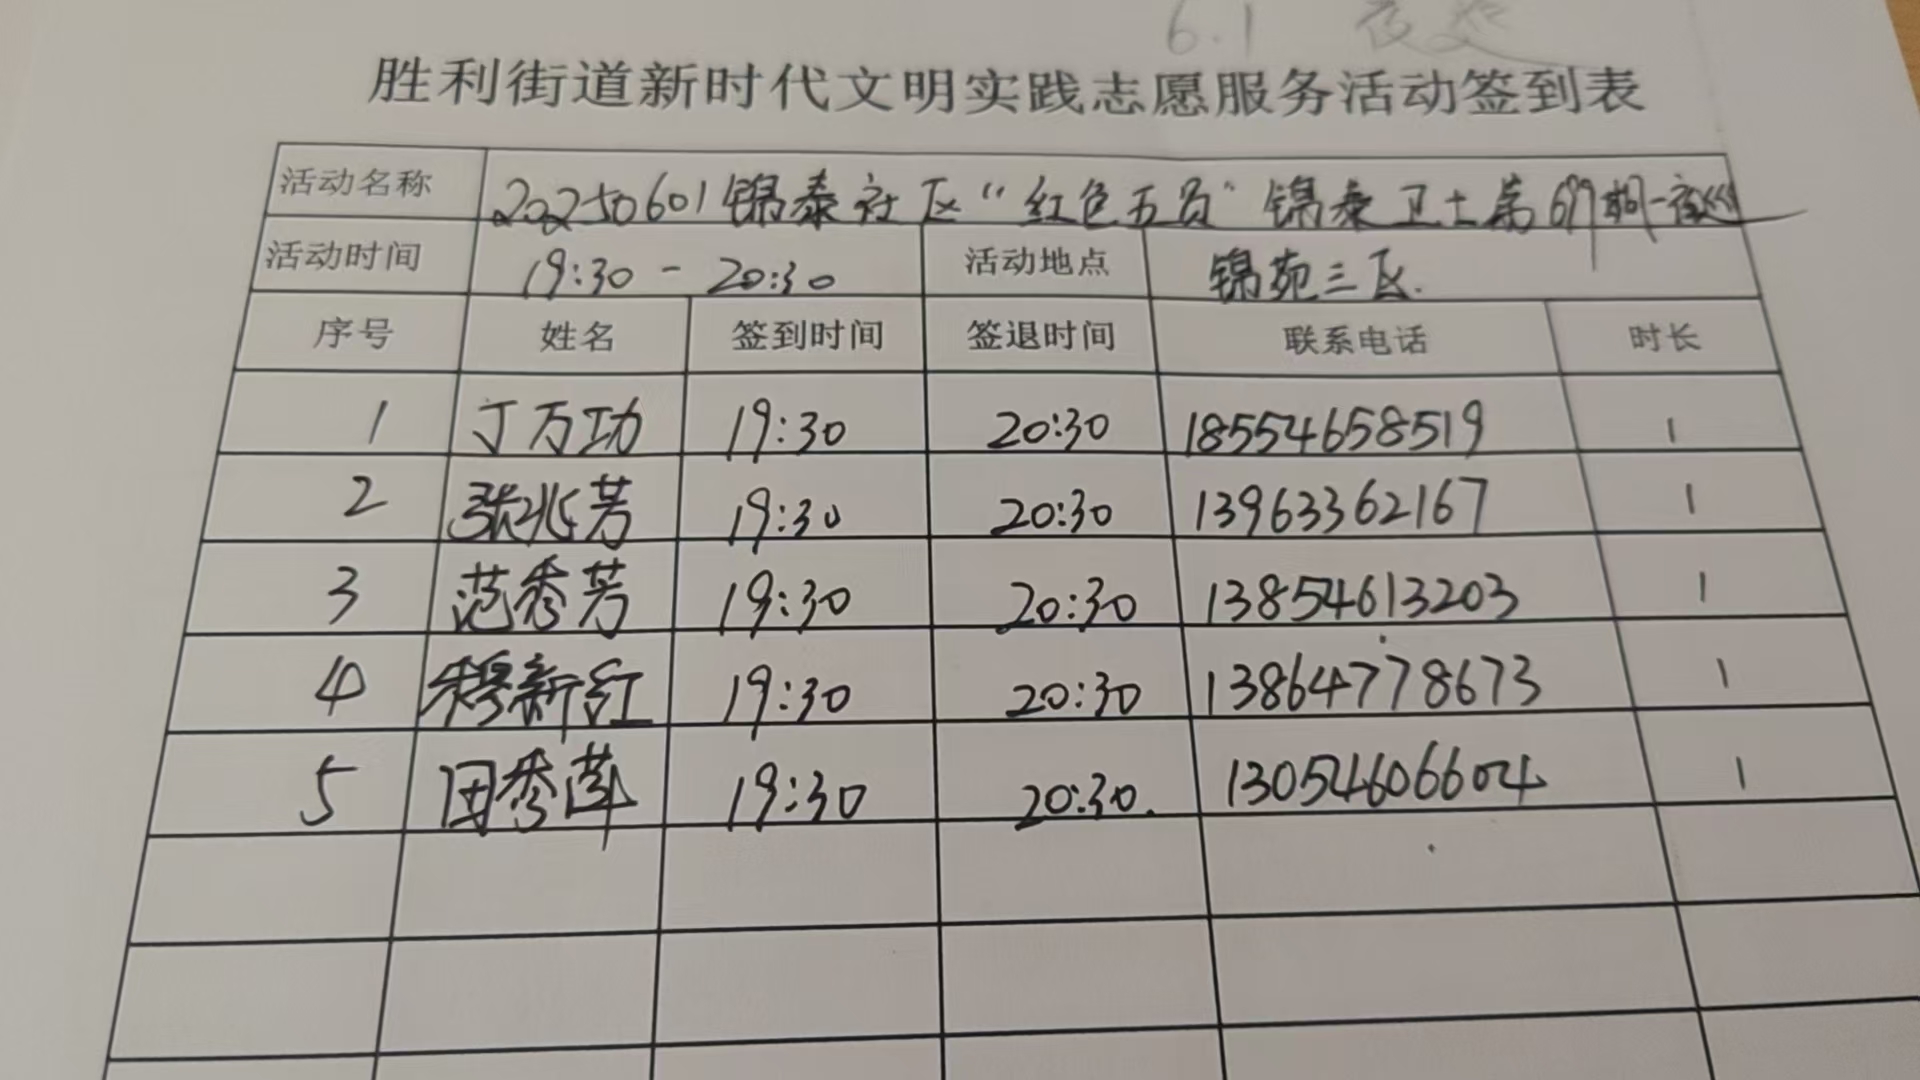 6.1 夜巡
胜利街道新时代文明实践志愿服务活动签到表
活动名称 20250601锦泰社区“红色五员”锦泰卫士第69期-夜巡
活动时间 19:30-20:30 活动地点 锦苑三区.
序号 姓名 签到时间 签退时间 联系电话 时长
1 丁万功 19:30 20:30 18554658519 1
2 张兆芳 19:30 20:30 13963362167 1
3 范秀芳 19:30 20:30 13854613203 1
4 穆新红 19:30 20:30 13864778673 1
5 田秀莲 19:30 20:30. 13054606604 1